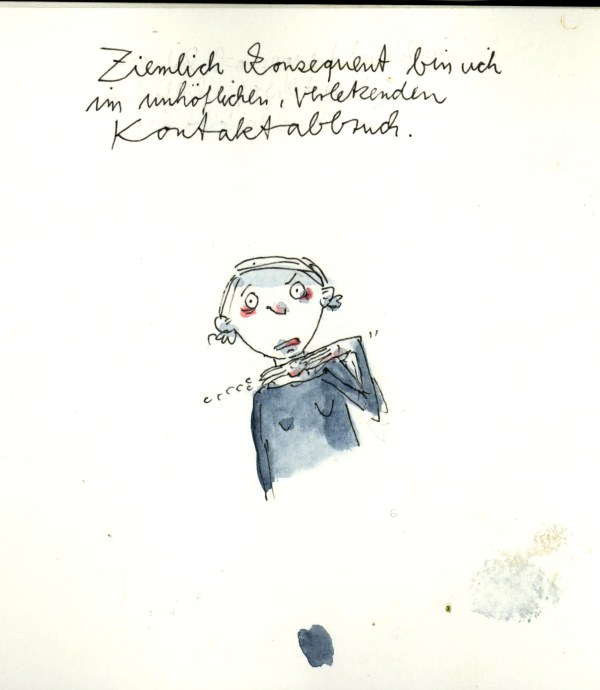 Ziemlich konsequent bin ich
im unhöflichen, verletzenden
Kontaktabbruch.